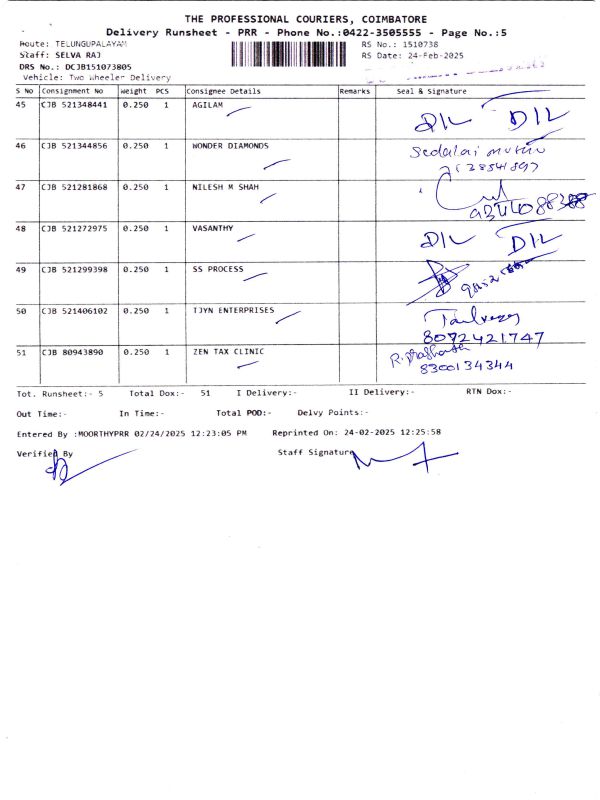 THE PROFESSIONAL COURIERS, COIMBATORE
Delivery Runsheet - PRR - Phone No.:0422-3505555 - Page No.:5
Route: TELUNGUPALAYAM RS No.: 1510738
Staff: SELVA RAJ RS Date: 24-Feb-2025
DRS No.: DCJB151073805
Vehicle: Two Wheeler Delivery
S No Consignment No Weight PCS Consignee Details Remarks Seal & Signature
45 CJB 521348441 0.250 1 AGILAM
DIL DIL
46 CJB 521344856 0.250 1 WONDER DIAMONDS
47 CJB 521281868 0.250 1 NILESH M SHAH
48 CJB 521272975 0.250 1 VASANTHY
DIL DIL
49 CJB 521299398 0.250 1 SS PROCESS
50 CJB 521406102 0.250 1 TJYN ENTERPRISES
8072421747
51 CJB 80943890 0.250 1 ZEN TAX CLINIC
8300134344
Tot. Runsheet:- 5 Total Dox:- 51 I Delivery:- II Delivery:- RTN Dox:-
Out Time:- In Time:- Total POD:- Delvy Points:-
Entered By :MOORTHYPRR 02/24/2025 12:23:05 PM Reprinted On: 24-02-2025 12:25:58
Verified By Staff Signature